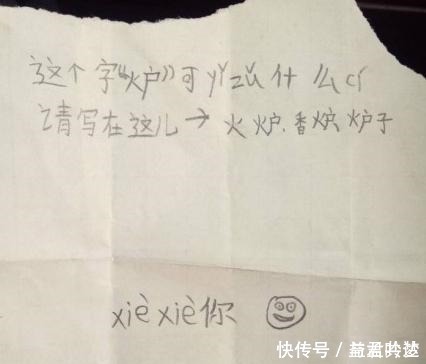 这个字“炉”可yǐzǔ什么cí
请写在这儿→火炉.香炉、炉子
xièxiè你
快传号/益羞昤逑